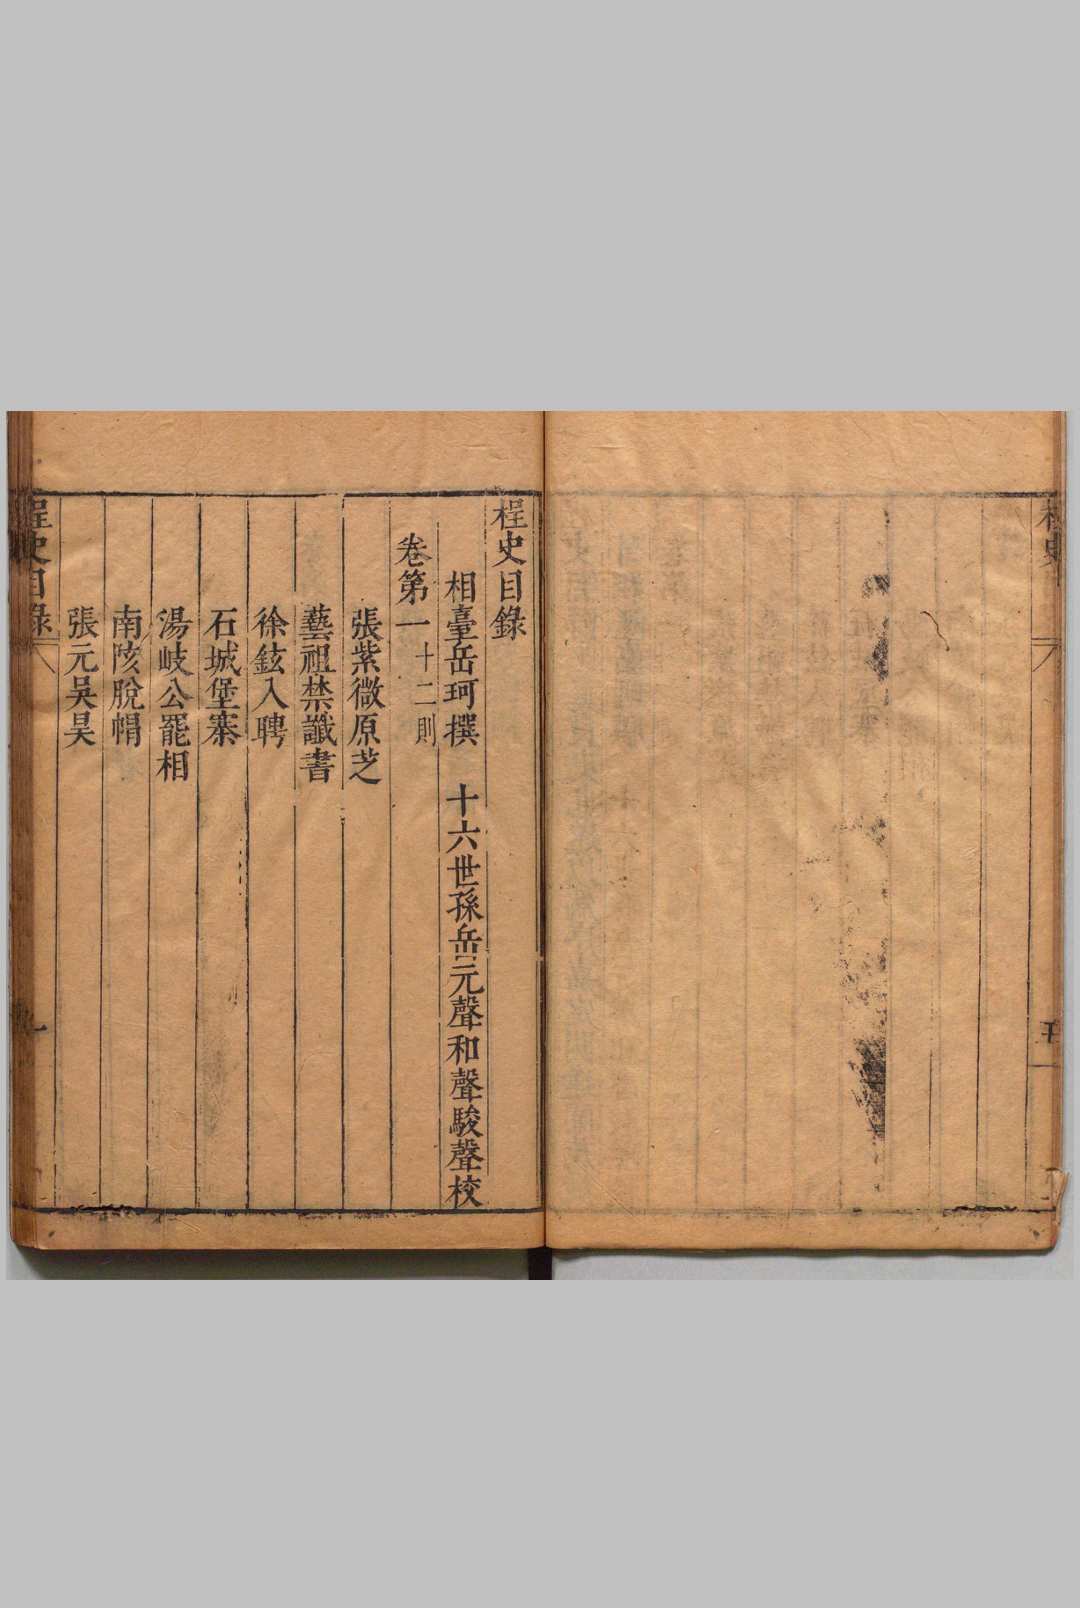 桯史
桯史目錄
相臺岳珂撰　十六世孫岳元聲和聲駿聲校
卷第一　十二則
張紫微原芝
藝祖禁讖書
徐鉉入聘
石城堡寨
湯岐公罷相
南陔脫帽
張元吳昊
桯史目錄
一